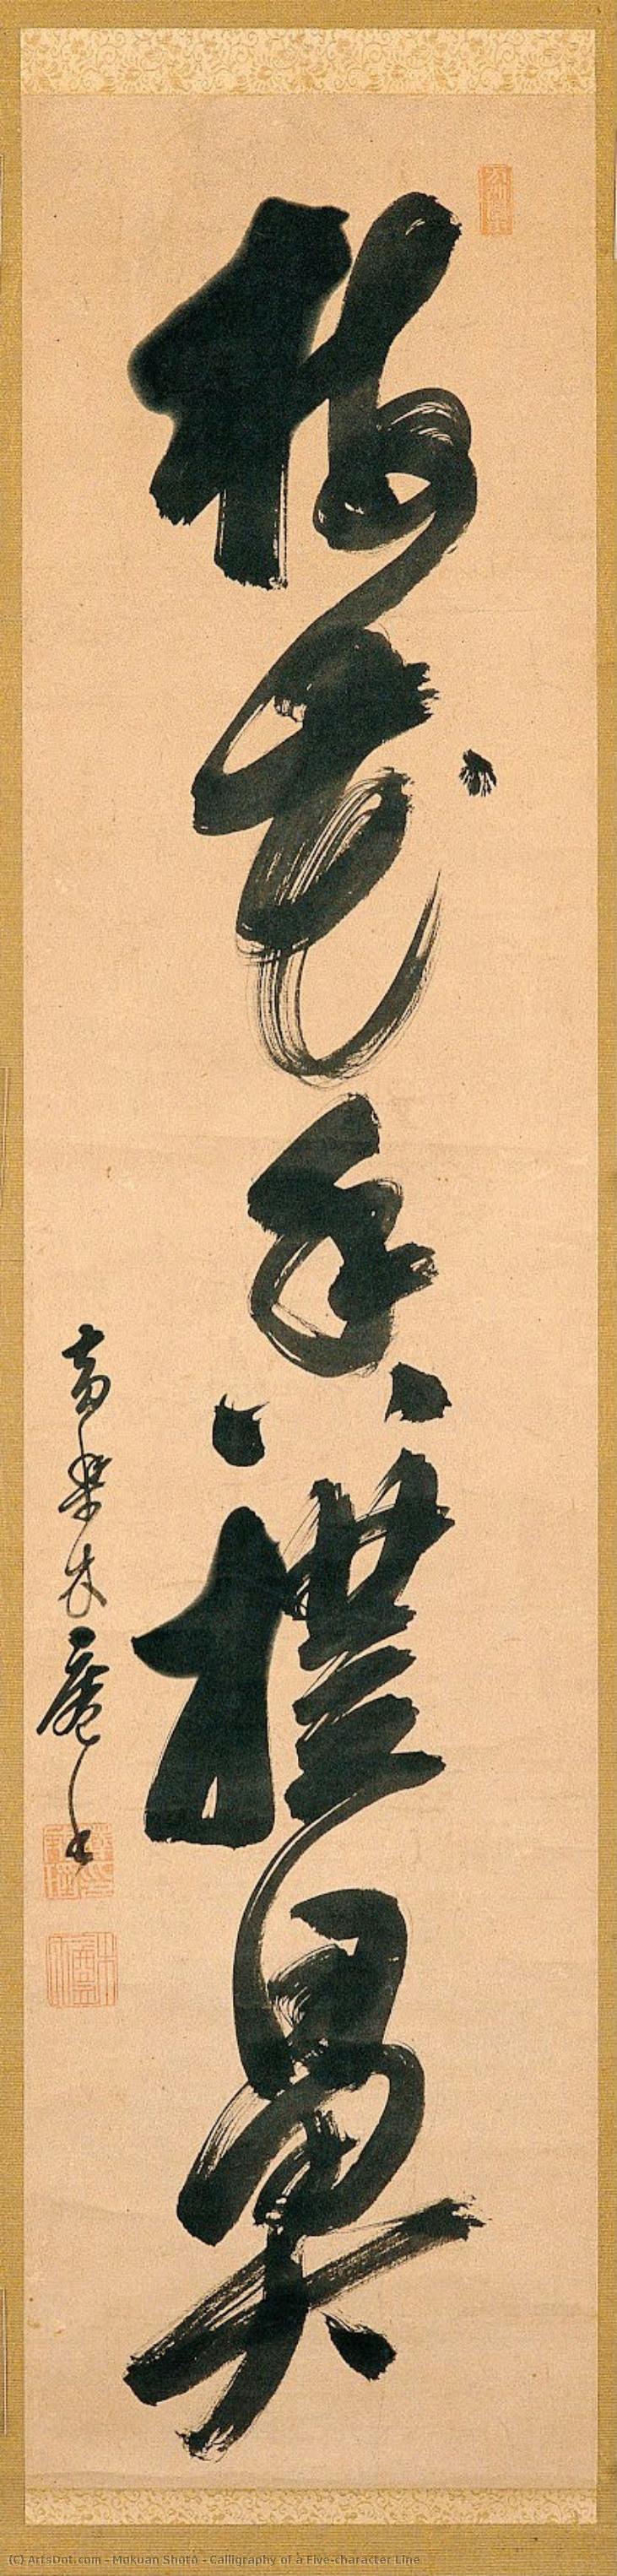 梅花香撲鼻
黄檗木菴書
(C) ArtsDot.com - Mokuan Shôtô - Calligraphy of a Five-character Line